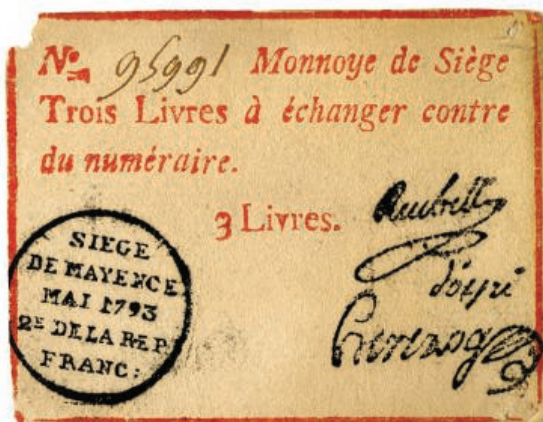 No. 95991 Monnoye de Siège
Trois Livres à échanger contre
du numéraire.
3 Livres.
SIEGE
DE MAYENCE
MAI 1793
2E DE LA REP.
FRANC:
Reubell
d'oyré